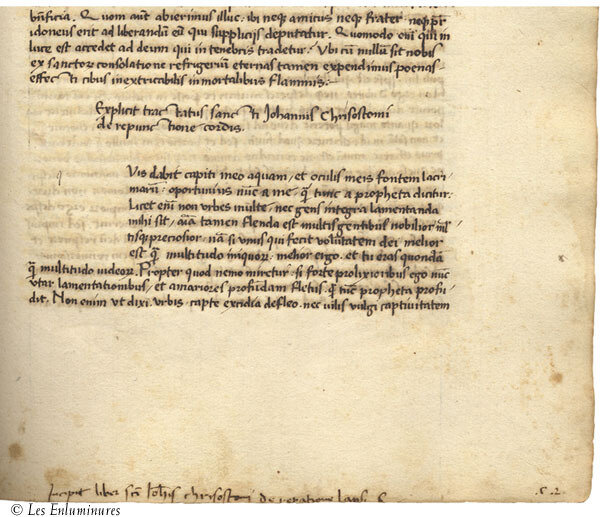 bn̄ficia. Quom aut̄ abierimus illuc. ibi neq; amicus neq; frater neq; pr̄
idoneus erit ad liberandū eū qui supplicijs deputatur. Quomodo em̄ qui in
luce est accedet ad deum qui in tenebris tradetur. Vbi cū nullū sit nobis
ex sanctorꝝ consolatione refrigeriū eternas tamen expendimus poenas
effecti cibus inextricabilis inmortalibus flammis:
Explicit tractatus sancti Johannis Chrisostomi
de repunctione cordis.
Vis dabit capiti meo aquam, et oculis meis fontem lacri
marū. oportunius nūc a me, q̄ tunc a propheta dicitur.
Licet em̄ non urbes multe, nec gens integra lamentanda
mihi sit, aīa tamen flenda est multis gentibus nobilior mĺ
tisq; preciosior. nā si unus qui fecit volūtatem dei melior
est q̄ multitudo iniquorꝝ. melior ergo. et tu eras quondā
q̄ multitudo iudeorꝝ. Propter quod nemo miretur. si forte prolixioribus ego nūc
utar lamentationibus, et amariores profūdam fletus. q̄ tūc propheta profu
dit. Non enim ut dixi urbis capte excidia defleo. nec uilis uulgi captiuitatem
Incipit liber scī Iohīs chrisostomi de reparatione lapsi
.c.2.
© Les Enluminures